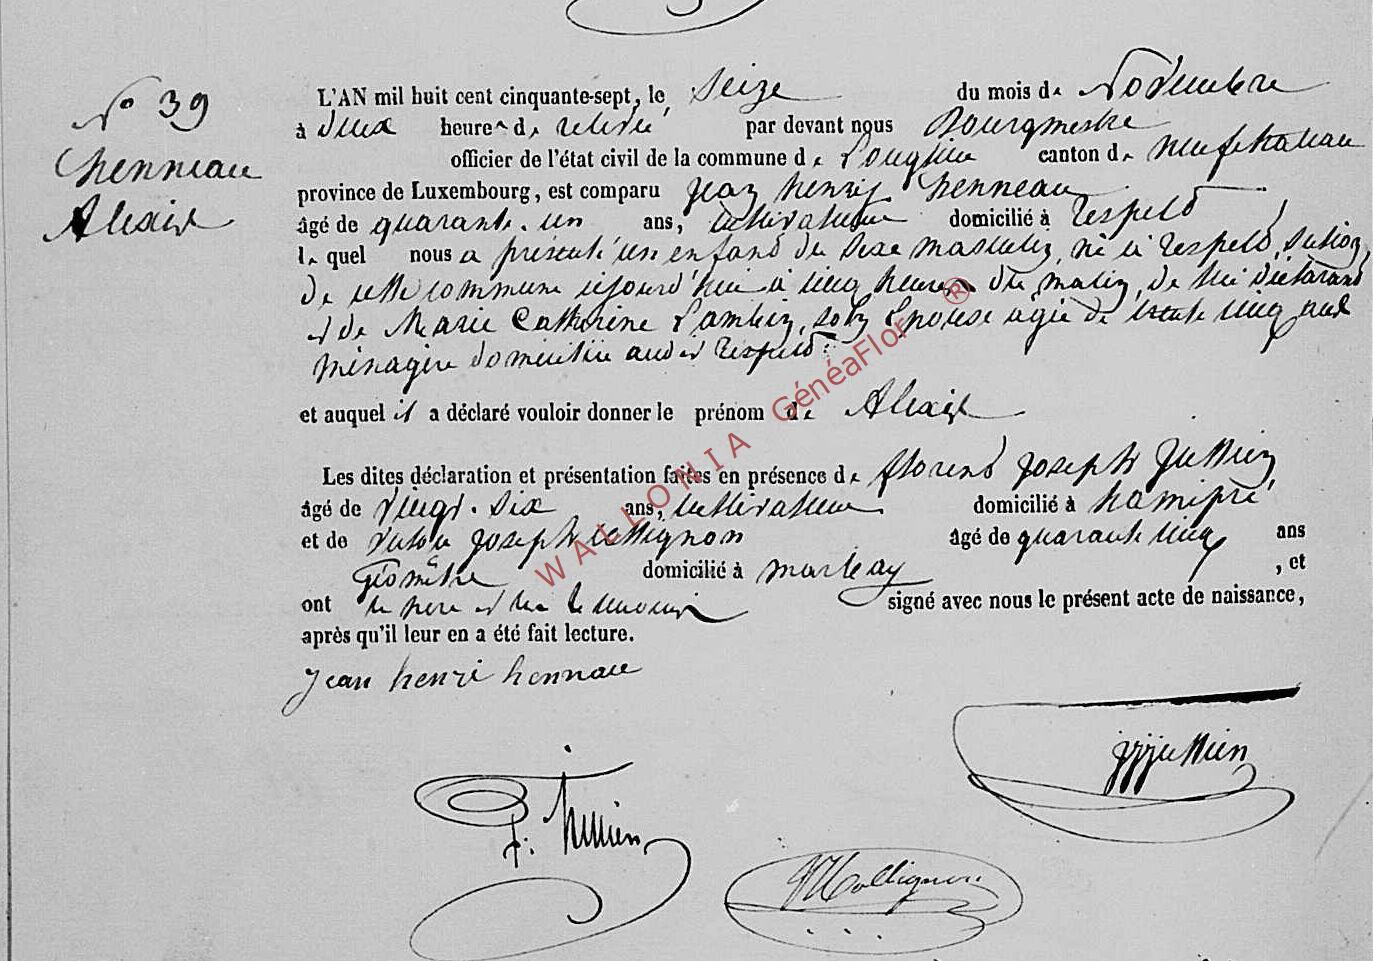 N° 39
henneau
Alexis
L'AN mil huit cent cinquante-sept, le Seize du mois de Novembre
à deux heures de relevée par devant nous Bourgmestre
officier de l'état civil de la commune de Longlier canton de Neufchateau
province de Luxembourg, est comparu Jean henry henneau
âgé de quarante-un ans, cultivateur domicilié à respelt
lequel nous a présenté un enfant du sexe masculin, né à respelt, section
de cette commune cejourd'hui à cinq heures du matin, de lui déclarant
et de Marie Catherine Lambin, son Epouse agée de trente cinq ans
ménagère domiciliée audit respelt.
et auquel il a déclaré vouloir donner le prénom de Alexis
Les dites déclaration et présentation faites en présence de florent Joseph
âgé de vingt-six ans, cultivateur domicilié à hamipré
et de Joseph Collignon âgé de quarante cinq ans
Géomètre domicilié à marbay , et
ont le père et les témoins signé avec nous le présent acte de naissance,
après qu'il leur en a été fait lecture.
Jean henri hennau
Collignon
WALLONIA GénéaFlor ®